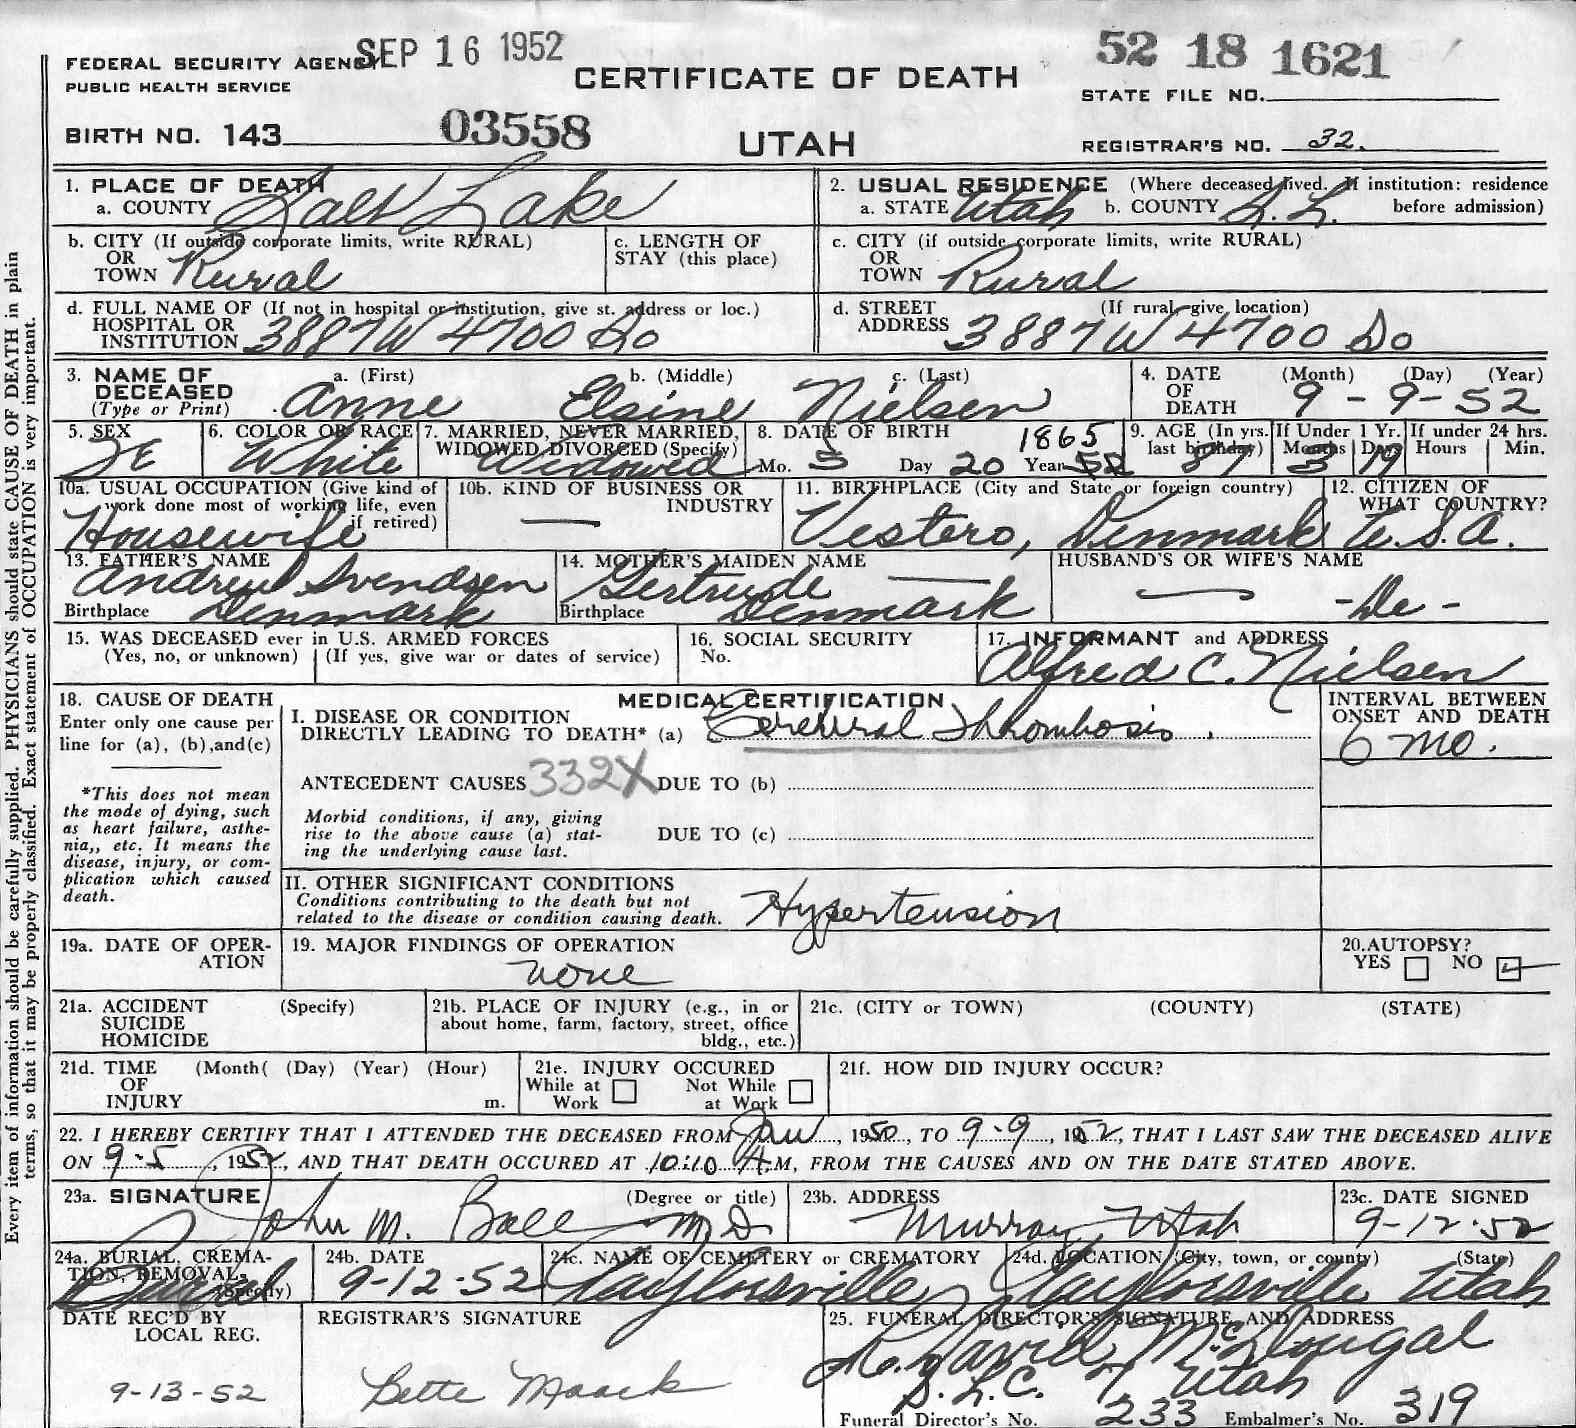 SEP 16 1952
52 18 1621
FEDERAL SECURITY AGENCY
PUBLIC HEALTH SERVICE
CERTIFICATE OF DEATH
STATE FILE NO.
BIRTH NO. 143 03558
UTAH
REGISTRAR'S NO. 32.
1. PLACE OF DEATH
a. COUNTY Salt Lake
2. USUAL RESIDENCE (Where deceased lived. If institution: residence before admission)
a. STATE Utah b. COUNTY S. L.
b. CITY (If outside corporate limits, write RURAL)
OR
TOWN Rural
c. LENGTH OF
STAY (this place)
c. CITY (if outside corporate limits, write RURAL)
OR
TOWN Rural
d. FULL NAME OF (If not in hospital or institution, give st. address or loc.)
HOSPITAL OR
INSTITUTION 3887 W 4700 So
d. STREET (If rural give location)
ADDRESS 3887 W 4700 So
3. NAME OF a. (First) b. (Middle) c. (Last)
DECEASED
(Type or Print) Anne Elsine Nielsen
4. DATE (Month) (Day) (Year)
OF
DEATH 9 - 9 - 52
5. SEX
Fe
6. COLOR OR RACE
White
7. MARRIED, NEVER MARRIED,
WIDOWED DIVORCED (Specify)
Widowed
8. DATE OF BIRTH 1865
Mo. 5 Day 20 Year 52
9. AGE (In yrs. last birthday) 87
If Under 1 Yr. Months 3 Days 19
If under 24 hrs. Hours Min.
10a. USUAL OCCUPATION (Give kind of
work done most of working life, even
if retired)
Housewife
10b. KIND OF BUSINESS OR
INDUSTRY
—
11. BIRTHPLACE (City and State or foreign country)
Vestero, Denmark
12. CITIZEN OF
WHAT COUNTRY?
U.S.A.
13. FATHER'S NAME
Andrew Svendsen
Birthplace Denmark
14. MOTHER'S MAIDEN NAME
Gertrude —
Birthplace Denmark
HUSBAND'S OR WIFE'S NAME
— -De-
15. WAS DECEASED ever in U.S. ARMED FORCES
(Yes, no, or unknown) (If yes, give war or dates of service)
16. SOCIAL SECURITY
No.
17. INFORMANT and ADDRESS
Alfred C. Nielsen
18. CAUSE OF DEATH
Enter only one cause per
line for (a), (b),and(c)
*This does not mean
the mode of dying, such
as heart failure, asthe-
nia,, etc. It means the
disease, injury, or com-
plication which caused
death.
MEDICAL CERTIFICATION
I. DISEASE OR CONDITION
DIRECTLY LEADING TO DEATH* (a) Cerebral Thrombosis.
INTERVAL BETWEEN
ONSET AND DEATH
6 mo.
ANTECEDENT CAUSES 332X DUE TO (b)
Morbid conditions, if any, giving
rise to the above cause (a) stat-
ing the underlying cause last.
DUE TO (c)
II. OTHER SIGNIFICANT CONDITIONS
Conditions contributing to the death but not
related to the disease or condition causing death.
Hypertension
19a. DATE OF OPER-
ATION
19. MAJOR FINDINGS OF OPERATION
none
20.AUTOPSY?
YES NO
21a. ACCIDENT (Specify)
SUICIDE
HOMICIDE
21b. PLACE OF INJURY (e.g., in or
about home, farm, factory, street, office
bldg., etc.)
21c. (CITY or TOWN) (COUNTY) (STATE)
21d. TIME (Month( (Day) (Year) (Hour)
OF
INJURY m.
21e. INJURY OCCURED
While at Work Not While at Work
21f. HOW DID INJURY OCCUR?
22. I HEREBY CERTIFY THAT I ATTENDED THE DECEASED FROM Jan, 1950, TO 9-9, 1952, THAT I LAST SAW THE DECEASED ALIVE
ON 9-5, 1952, AND THAT DEATH OCCURED AT 10:10 A.M, FROM THE CAUSES AND ON THE DATE STATED ABOVE.
23a. SIGNATURE (Degree or title)
John M. Bale M.D.
23b. ADDRESS
Murray Utah
23c. DATE SIGNED
9-12-52
24a. BURIAL, CREMA-
TION, REMOVAL.
(Specify)
Burial
24b. DATE
9-12-52
24c. NAME OF CEMETERY or CREMATORY
Taylorsville
24d. LOCATION (City, town, or county) (State)
Taylorsville Utah
DATE REC'D BY
LOCAL REG.
9-13-52
REGISTRAR'S SIGNATURE
Bette Maack
25. FUNERAL DIRECTOR'S SIGNATURE AND ADDRESS
David McDougal
S.L.C. 7, Utah
Funeral Director's No. 233 Embalmer's No. 319
Every item of information should be carefully supplied. PHYSICIANS should state CAUSE OF DEATH in plain
terms, so that it may be properly classified. Exact statement of OCCUPATION is very important.